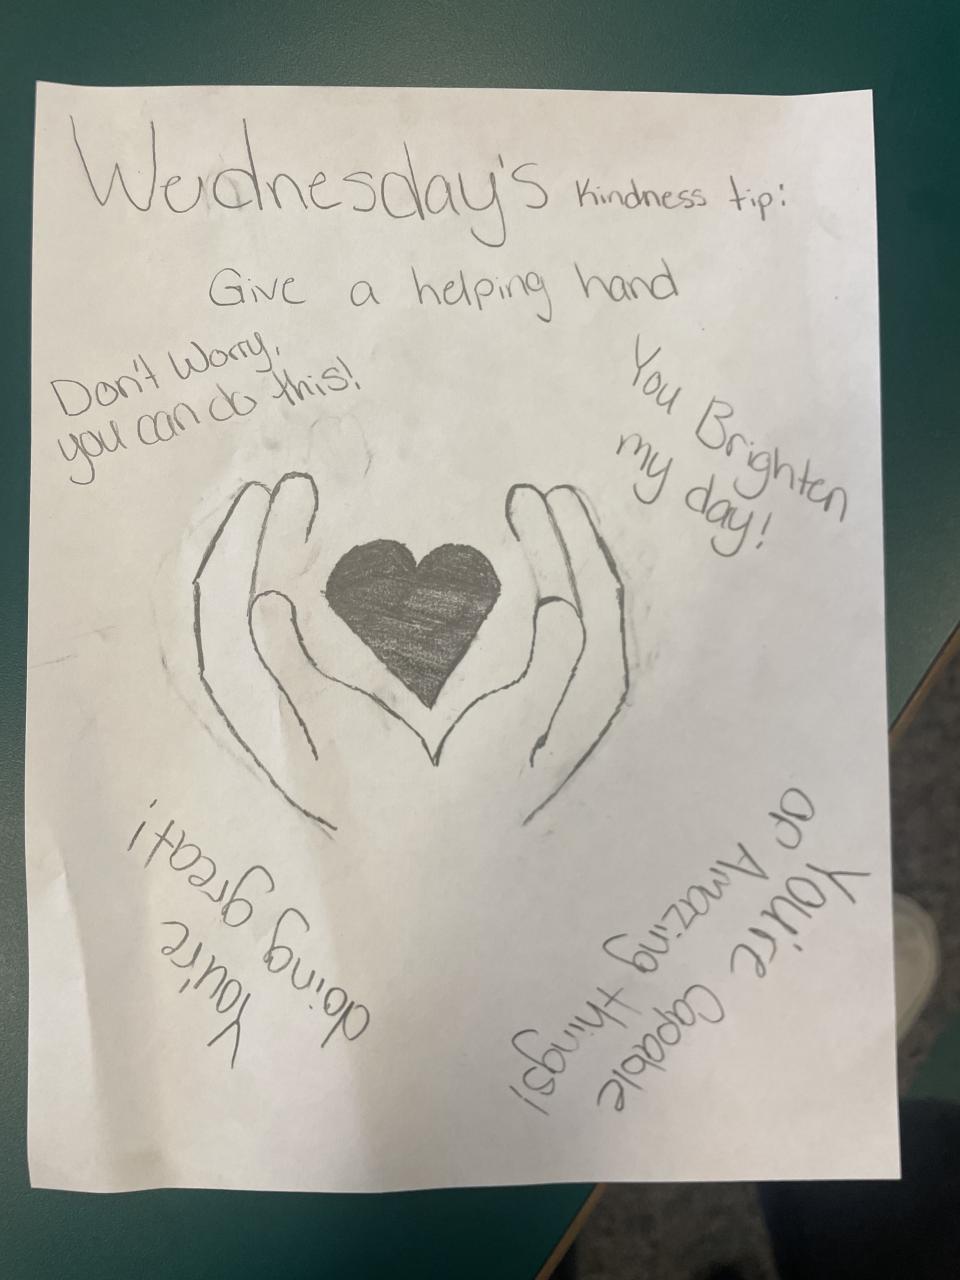 Wednesday's Kindness tip:
Give a helping hand
Don't Worry,
you can do this!
You Brighten
my day!
You're
doing great!
You're Capable
on Amazing things!